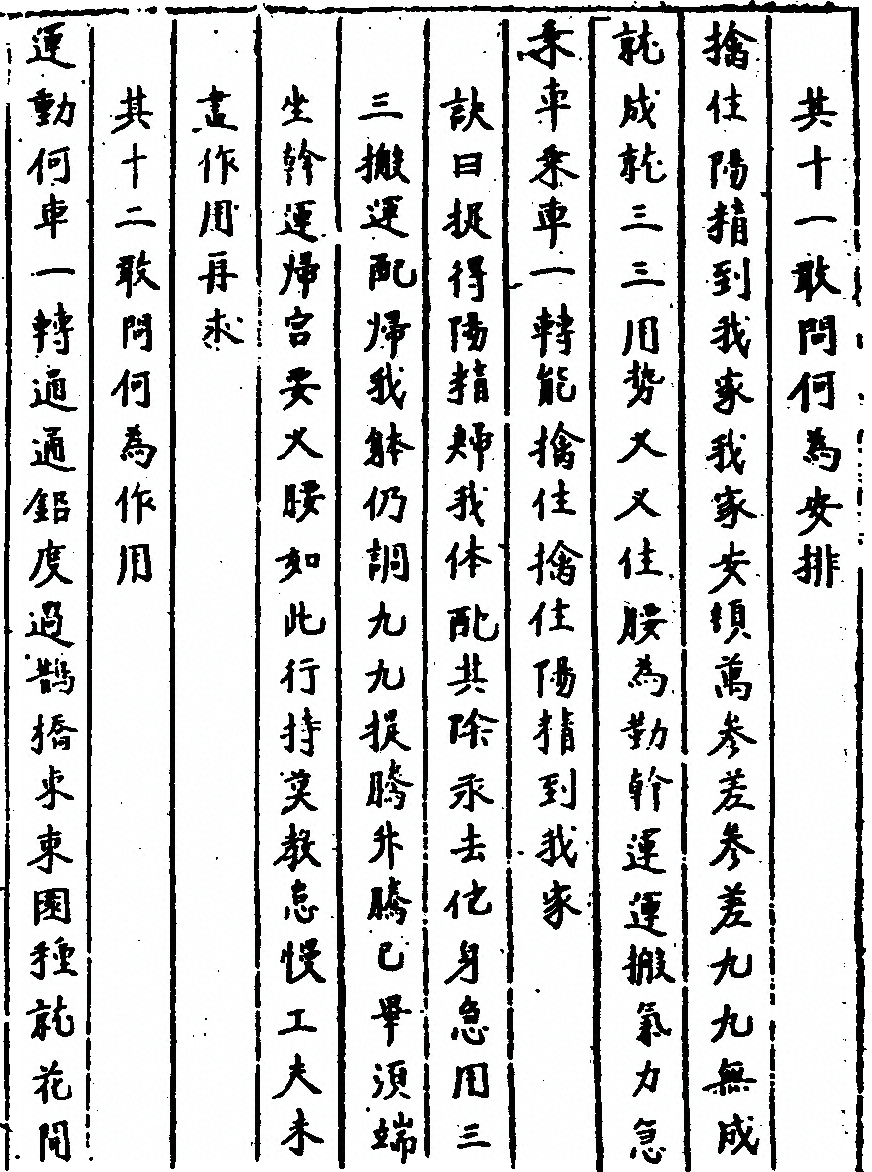 其十一敢問何為安排
擒住陽精到我家我家安頓萬參差參差九九無成
就成就三三用勢乂乂住腰為勤幹運運搬氣力急
乘車乘車一轉能擒住擒住陽精到我家
訣曰捉得陽精歸我体配其除汞去佗身急用三三
三搬運配歸我躰仍調九九捉騰升騰已畢須端
坐幹運歸宮要乂腰如此行持莫教怠慢工夫未
盡作用再求
其十二敢問何為作用
運動何車一轉通通鉛度過鵲橋東東園種就花開